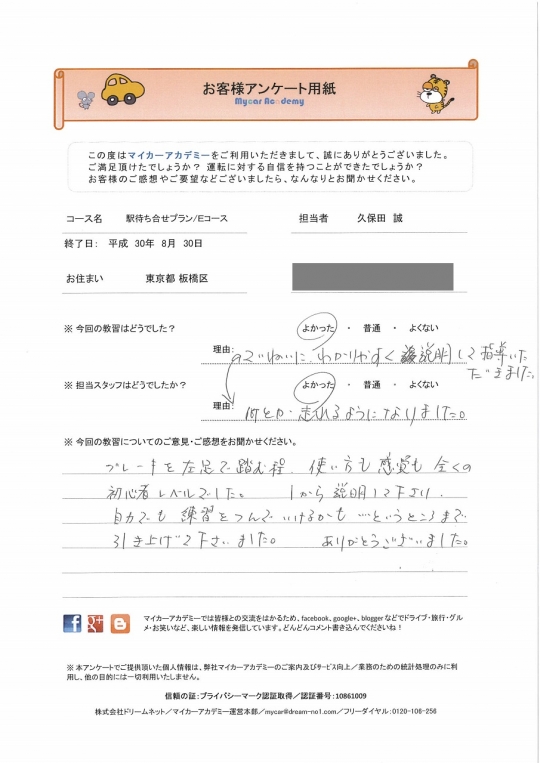 お客様アンケート用紙
Mycar Academy
この度はマイカーアカデミーをご利用いただきまして、誠にありがとうございました。
ご満足頂けたでしょうか？ 運転に対する自信を持つことができたでしょうか？
お客様のご感想やご要望などございましたら、なんなりとお聞かせください。
コース名 駅待ち合せプラン/Eコース 担当者 久保田 誠
終了日: 平成 30年 8月 30日
お住まい 東京都 板橋区
※ 今回の教習はどうでした？ よかった ・ 普通 ・ よくない
理由: ていねいに、わかりやすく 説明して指導いた
だきました。
※ 担当スタッフはどうでしたか？ よかった ・ 普通 ・ よくない
理由: 何とか 走れるようになりました。
※ 今回の教習についてのご意見・ご感想をお聞かせください。
ブレーキを左足で踏む程、使い方も感覚も全くの
初心者レベルでした。 1から説明して下さり、
自力でも練習をつんでいけるかも…というところまで
引き上げて下さいました。 ありがとうございました。
マイカーアカデミーでは皆様との交流をはかるため、facebook、google+、blogger などでドライブ・旅行・グル
メ・お笑いなど、楽しい情報を発信しています。どんどんコメント書き込んでくださいね！
※ 本アンケートでご提供頂いた個人情報は、弊社マイカーアカデミーのご案内及びサービス向上／業務のための統計処理のみに利
用し、他の目的には一切利用いたしません。
信頼の証：プライバシーマーク認証取得／認証番号：10861009
株式会社ドリームネット／マイカーアカデミー運営本部／mycar@dream-no1.com／フリーダイヤル：0120-106-256